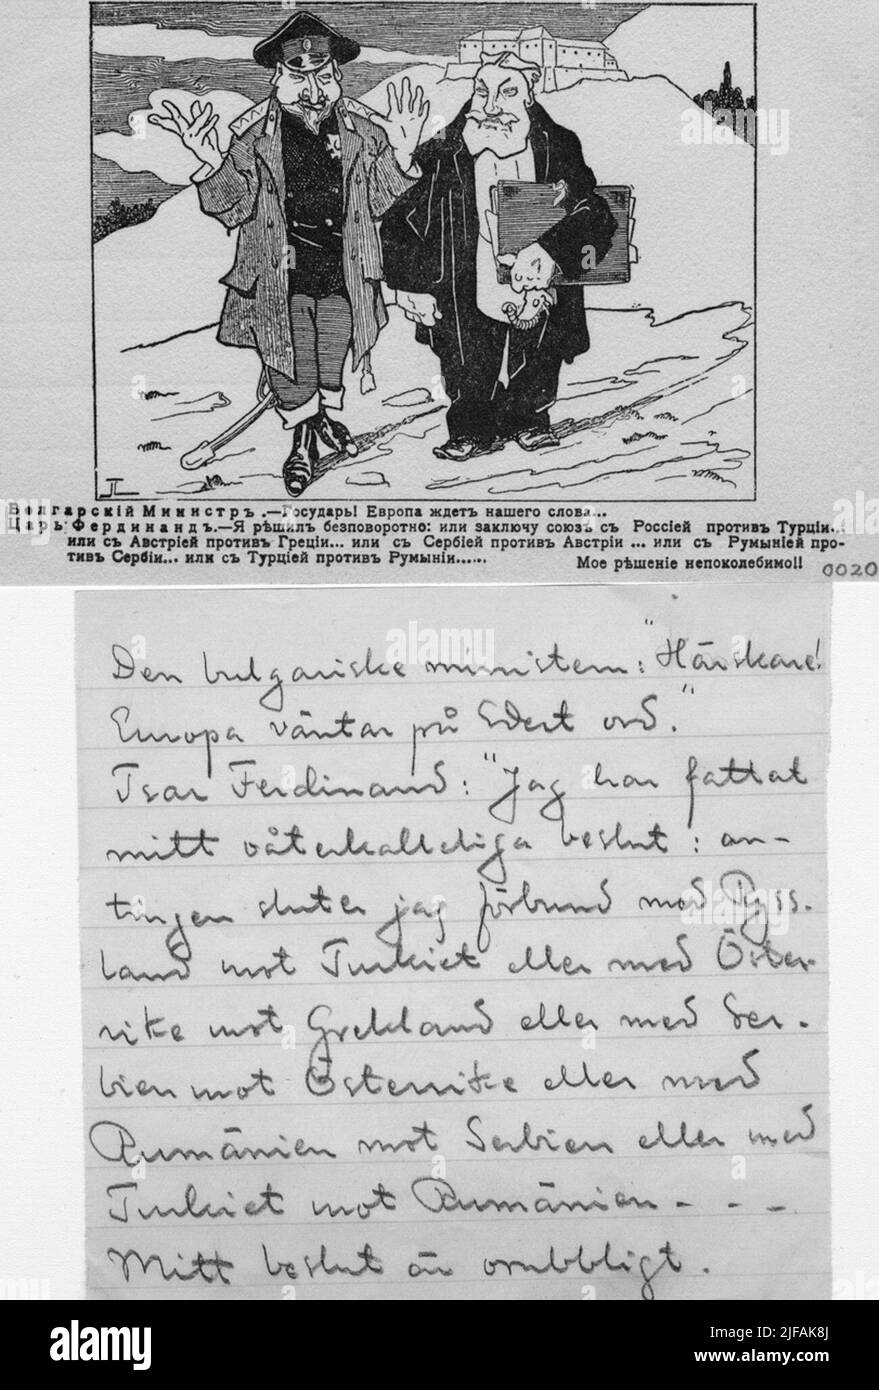 Болгарскій Министръ.—Государь! Европа ждетъ нашего слова...
Царь Фердинандъ.—Я рѣшилъ безповоротно: или заключу союзъ съ Россіей противъ Турціи...
или съ Австріей противъ Греціи... или съ Сербіей противъ Австріи ... или съ Румыніей про-
тивъ Сербіи... или съ Турціей противъ Румыніи......
Мое рѣшеніе непоколебимо!!
0020
Den bulgariske ministern: "Härskare!
Europa väntar på Edert ord."
Tsar Ferdinand: "Jag har fattat
mitt oåterkalleliga beslut: an-
tingen sluter jag förbund med Ryss-
land mot Turkiet eller med Öster-
rike mot Grekland eller med Ser-
bien mot Österrike eller med
Rumänien mot Serbien eller med
Turkiet mot Rumänien - - -
Mitt beslut är orubbligt.
alamy
Image ID: 2JFAK8J
www.alamy.com